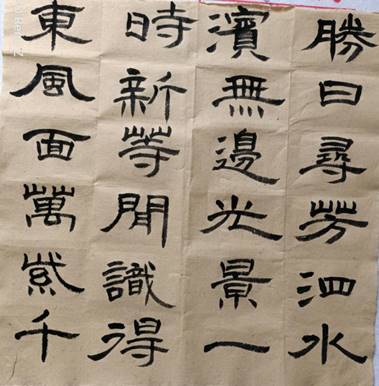 勝日尋芳泗水
濱無邊光景一
時新等閒識得
東風面萬紫千